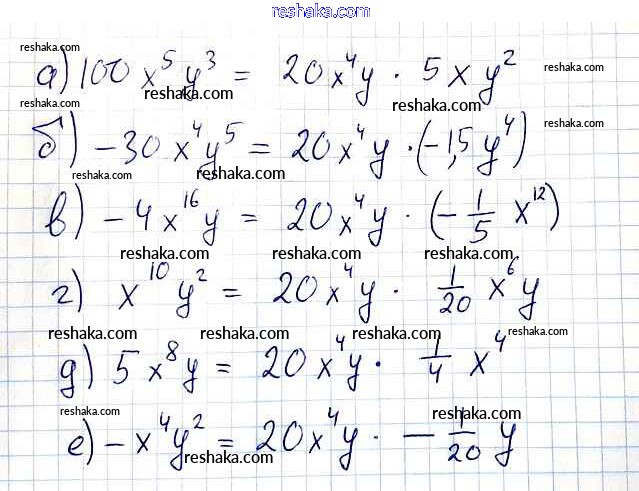 reshaka.com
reshaka.com reshaka.com
reshaka.com
а) 100 x⁵ y³ = 20x⁴y · 5x y²
reshaka.com reshaka.com
reshaka.com
б) −30 x⁴y⁵ = 20x⁴y · (−1,5 y⁴)
reshaka.com reshaka.com reshaka.com
в) −4 x¹⁶ y = 20x⁴y · (−1/5 x¹²)
reshaka.com reshaka.com reshaka.com
г) x¹⁰ y² = 20x⁴y · 1/20 x⁶y
reshaka.com reshaka.com reshaka.com
д) 5 x⁸y = 20x⁴y · 1/4 x⁴
reshaka.com reshaka.com reshaka.com
е) −x⁴y² = 20x⁴y · −1/20 y
reshaka.com reshaka.com